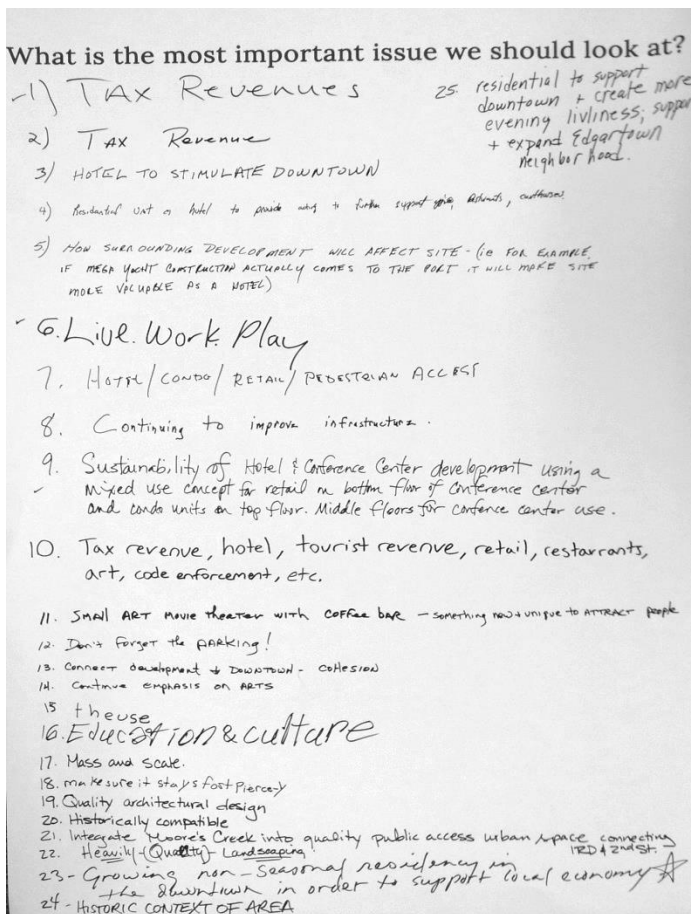 What is the most important issue we should look at?
1) TAX Revenues
2) TAX Revenue
3) HOTEL TO STIMULATE DOWNTOWN
4) Residential unit or hotel to provide to further support
5) HOW SURROUNDING DEVELOPMENT WILL AFFECT SITE - (ie FOR EXAMPLE,
IF MEGA YACHT CONSTRUCTION ACTUALLY COMES TO THE PORT IT WILL MAKE SITE
MORE VALUABLE AS A HOTEL)
6. Live. Work. Play
7. HOTEL/CONDO/RETAIL/PEDESTRIAN ACCESS
8. Continuing to improve infrastructure.
9. Sustainability of Hotel & Conference Center development using a
mixed use concept for retail on bottom floor of Conference center
and condo units on top floor. Middle floors for confence center use.
10. Tax revenue, hotel, tourist revenue, retail, restarrants,
art, code enforcement, etc.
11. SMALL ART movie theater with COFFEE BAR - something new + unique to ATTRACT people
12. Don't forget the PARKING!
13. Connect development + DOWNTOWN - COHESION
14. Continue emphasis on ARTS
15 theuse
16. Education & culture
17. Mass and scale.
18. make sure it stays fort Pierce-y
19. Quality architectural design
20. Historically compatible
21. Integate Moore's Creek into quality public access urban space connecting
IRD & 2nd St.
22. Heavily - Quality - Landscaping!
23 - Growing non-seasonal residency in
the downtown in order to support local economy
24 - HISTORIC CONTEXT OF AREA
25. residential to support
downtown + create more
evening livliness; suppor
+ expand Edgartown
neighborhood.